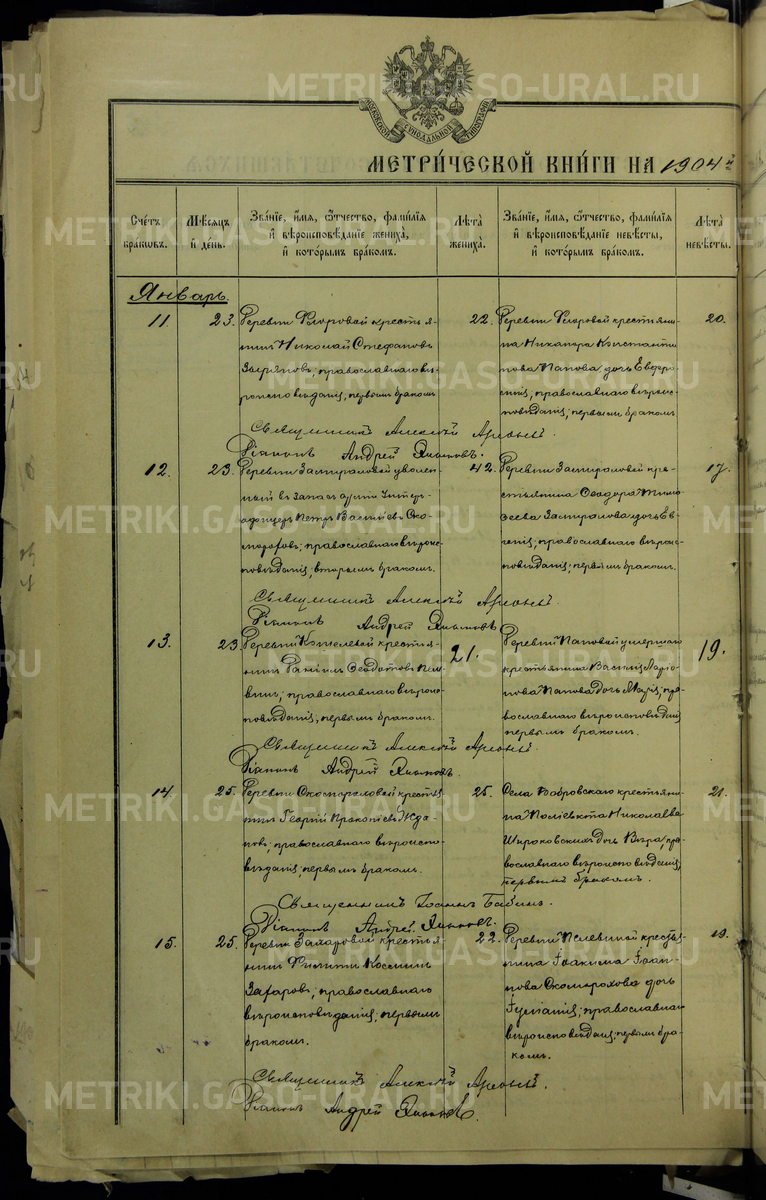 METRIKI.GASO-URAL.RU
МОСКОВСКОЙ СѴНОДАЛЬНОЙ ТИПОГРАФІИ
МЕТРИ́ЧЕСКОЙ КНИ́ГИ НА 1904 й
Сче́тъ бра́кѡвъ.
Мѣ́сѧцъ и҆ де́нь.
Зва́нїе, и҆́мѧ, ѻ҆́тчество, фами́лїѧ
и҆ вѣроисповѣ́данїе жениха̀,
и҆ кото́рымъ бра́комъ.
Лѣ́та жениха̀.
Зва́нїе, и҆́мѧ, ѻ҆́тчество, фами́лїѧ
и҆ вѣроисповѣ́данїе невѣ́сты,
и҆ кото́рымъ бра́комъ.
Лѣ́та невѣ́сты.
Январь
11. 23.
Деревни Флоровой крестья-
нинъ Николай Стефановъ
Зыряновъ, православнаго вѣ-
роисповѣданія, первымъ бракомъ
22.
Деревни Флоровой крестьяни-
на Никанора Константи-
нова Папова дочь Евфро-
синія, православнаго вѣроис-
повѣданія; первымъ бракомъ.
20.
Священникъ Алексѣй
Діаконъ Андрей
12. 23.
Деревни уволен-
ный въ запасъ арміи унтеръ-
офицеръ Петръ Васильевъ Ско-
мороховъ; православнаго вѣроис-
повѣданія; вторымъ бракомъ.
42.
Деревни кре-
стьянина Ѳеодора Тимо-
ѳеева дочь Ев-
генія; православнаго вѣроис-
повѣданія; первымъ бракомъ.
17.
Священникъ Алексѣй
Діаконъ Андрей
13. 23.
Деревни крестья-
нинъ Ѳеодотовъ Пеле-
винъ; православнаго вѣроис-
повѣданія, первымъ бракомъ.
21.
Деревни Паповой умершаго
крестьянина Василія Ларіо-
нова Папова дочь Марія; пра-
вославнаго вѣроисповѣданія
первымъ бракомъ.
19.
Священникъ Алексѣй
Діаконъ Андрей
14. 25.
Деревни крестья-
нинъ Георгій Прокопіевъ Жда-
новъ; православнаго вѣроиспо-
вѣданія; первымъ бракомъ.
25.
Села Бобровскаго крестьяни-
на Поліевкта Николаева
Широковскихъ дочь Вѣра, пра-
вославнаго вѣроисповѣданія,
первымъ бракомъ.
21.
Священникъ Іоаннъ Бабинъ.
Діаконъ Андрей
15. 25.
Деревни Захаровой крестья-
нинъ Филиппъ Косминъ
Захаровъ; православнаго
вѣроисповѣданія; первымъ
бракомъ.
22.
Деревни Пелевиной крестья-
нина Іоакима Іоан-
нова Скоморохова дочь
Іуліанія; православнаго
вѣроисповѣданія; первымъ бра-
комъ.
19.
Священникъ Алексѣй
Діаконъ Андрей